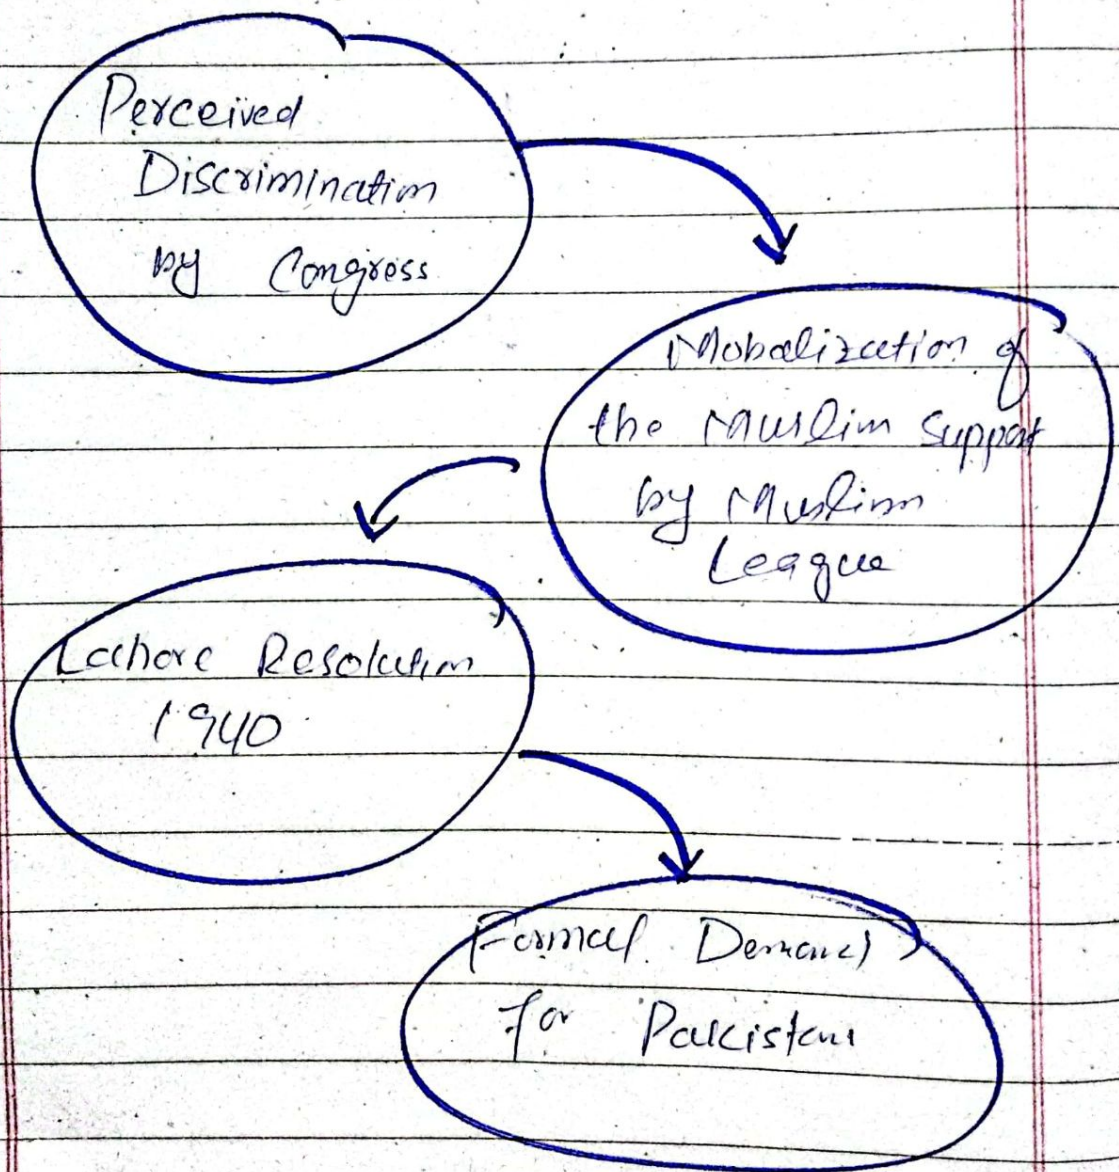 Perceived
Discrimination
by Congress
Mobalization of
the Muslim Support
by Muslim
League
Lahore Resolution
1940
Formal Demand
for Pakistan